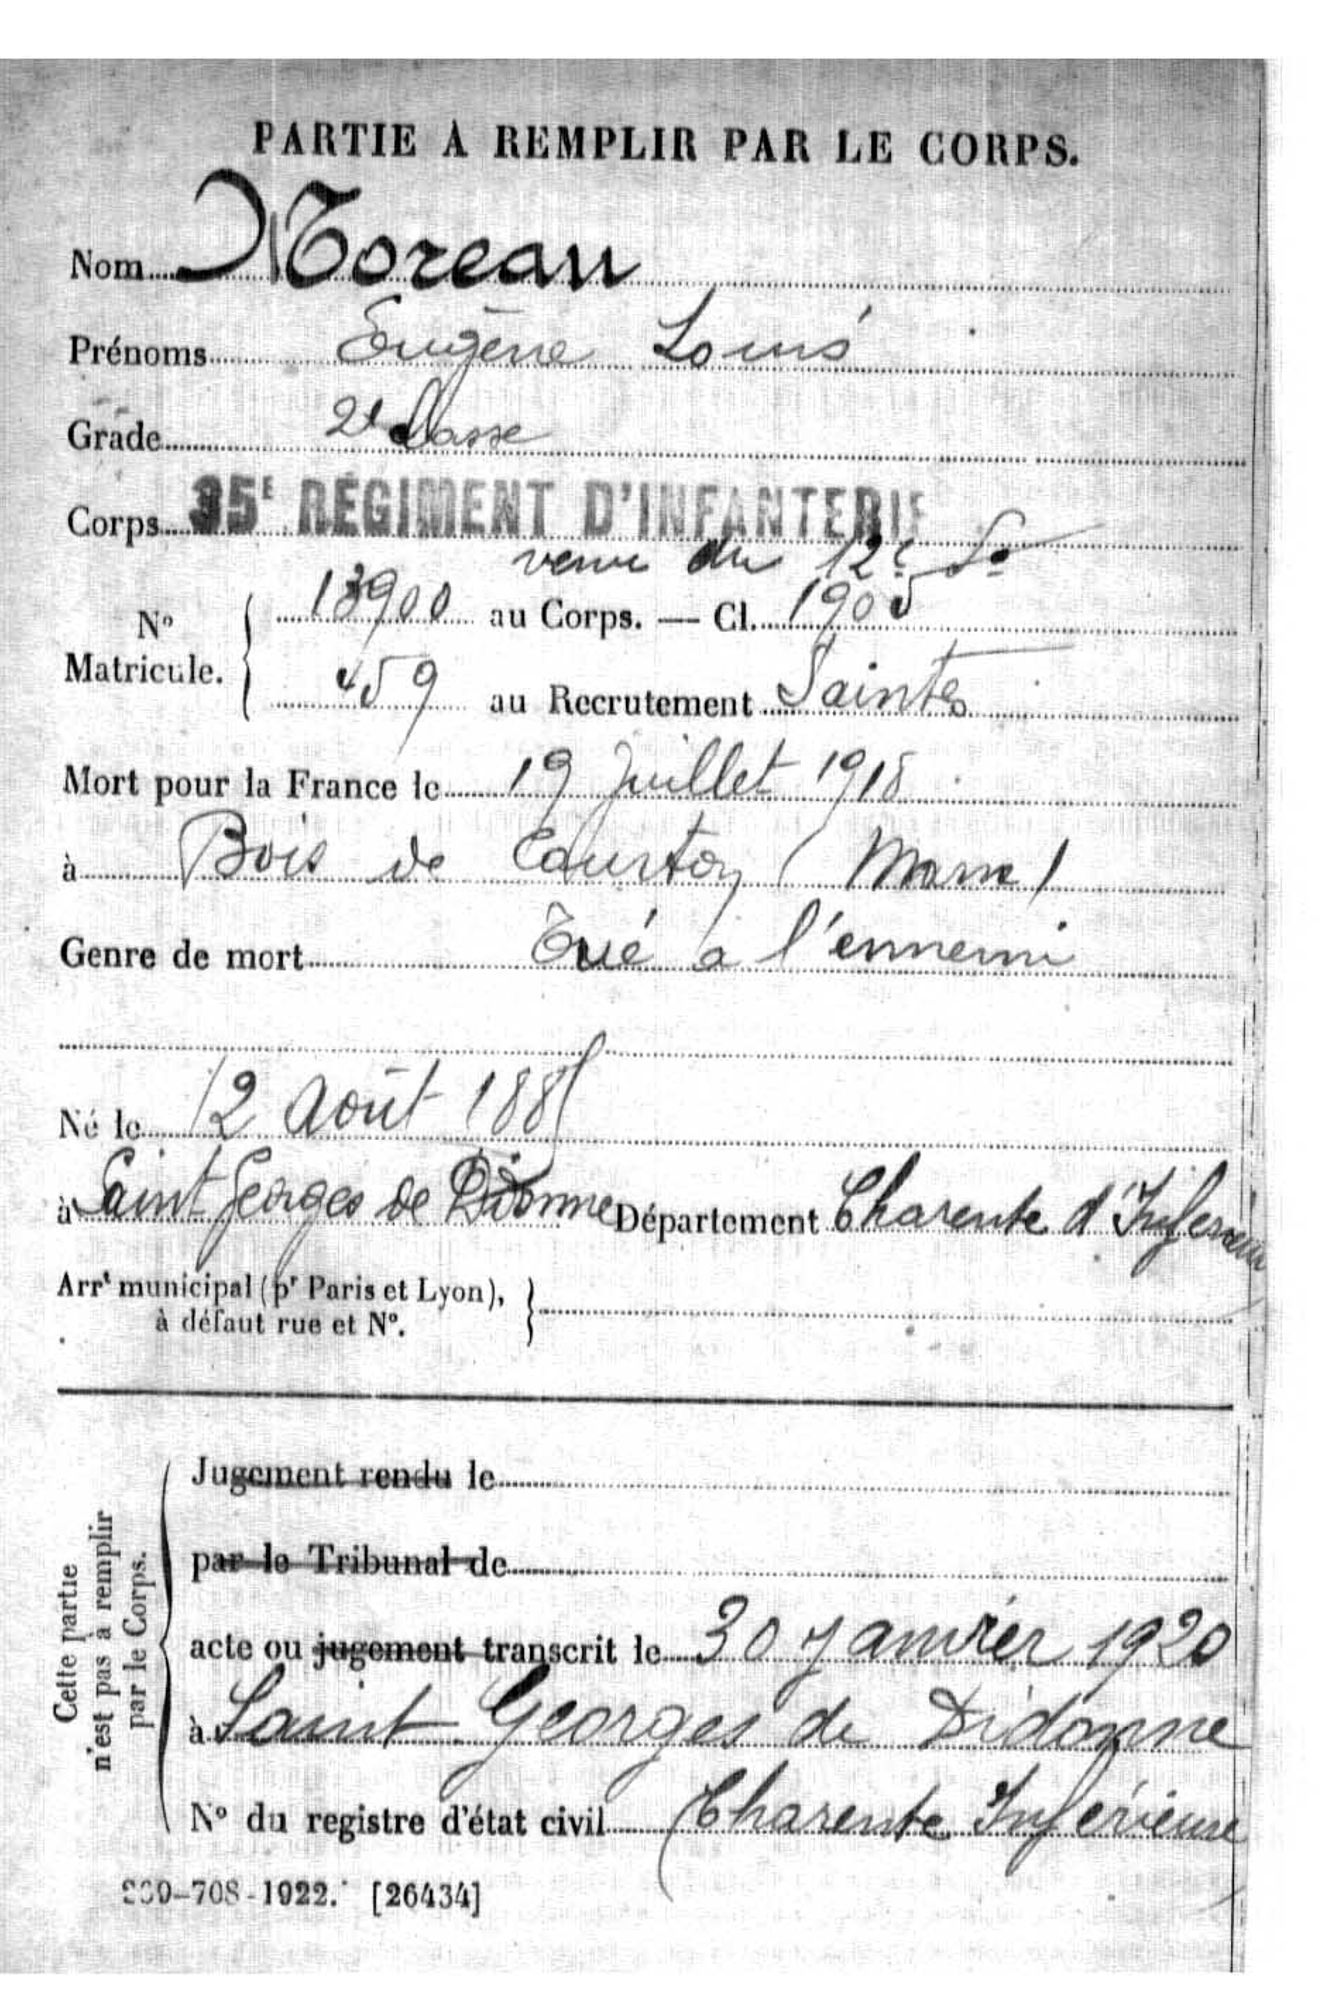 PARTIE À REMPLIR PAR LE CORPS.
Nom Moreau
Prénoms Eugène Louis
Grade 2e Classe
Corps 35E RÉGIMENT D'INFANTERIE
venu du 12e
13900 au Corps. — Cl. 1905
No Matricule.
459 au Recrutement Saintes
Mort pour la France le 19 Juillet 1918
à Bois de Courton (Marne)
Genre de mort Tué à l'ennemi
Né le 12 Août 1885
à Saint Georges de Didonne Département Charente d'Inférieure
Arrt municipal (pr Paris et Lyon),
à défaut rue et No.
Cette partie
n'est pas à remplir
par le Corps.
Jugement rendu le
par le Tribunal de
acte ou jugement transcrit le 30 janvier 1920
à Saint Georges de Didonne
No du registre d'état civil (Charente Inférieure
-708-1922. [26434]